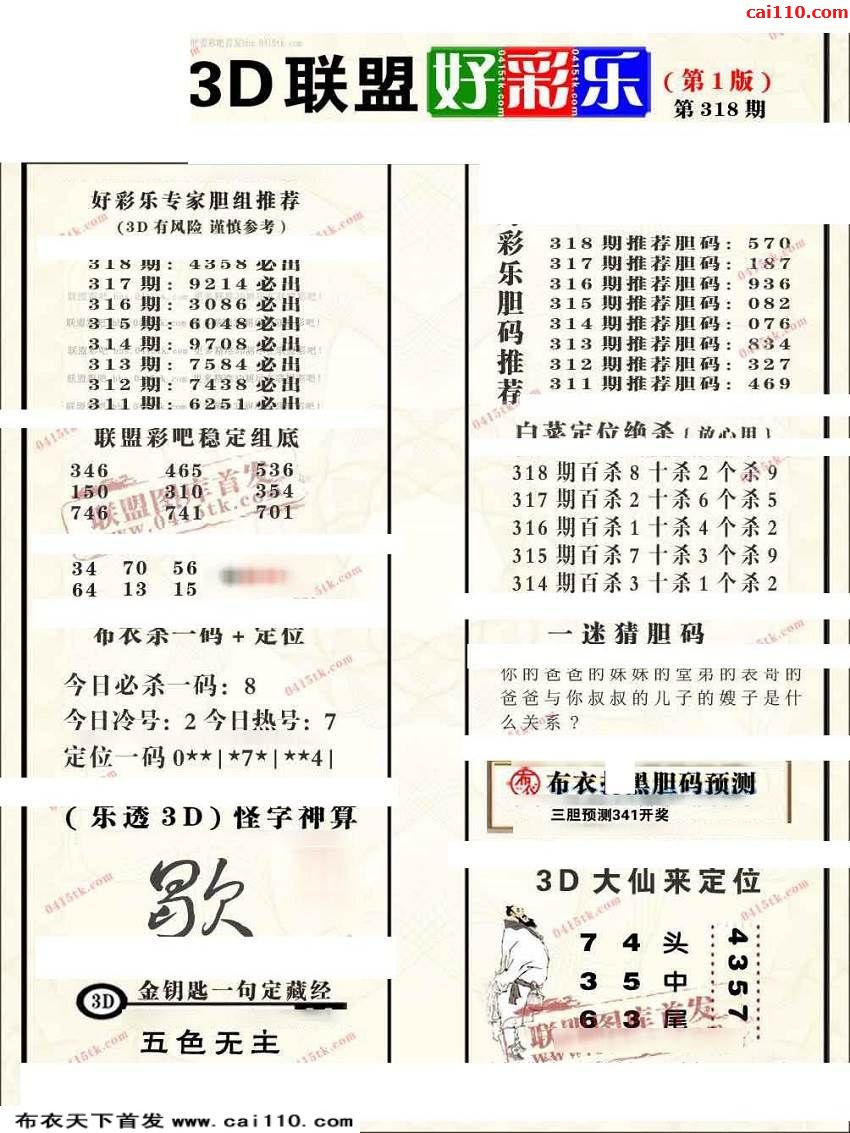 cai110.com
3D联盟好彩乐
(第1版)
第318期
好彩乐专家胆组推荐
(3D有风险 谨慎参考)
318期: 4358必出
317期: 9214必出
316期: 3086必出
315期: 6048必出
314期: 9708必出
313期: 7584必出
312期: 7438必出
311期: 6251必出
联盟彩吧稳定组底
346 465 536
150 310 354
746 741 701
34 70 56
64 13 15
布衣杀一码+定位
今日必杀一码: 8
今日冷号: 2 今日热号: 7
定位一码 0**|*7*|**4|
(乐透3D)怪字神算
歇
3D 金钥匙一句定藏经
五色无主
彩乐胆码推荐
318期推荐胆码: 570
317期推荐胆码: 187
316期推荐胆码: 936
315期推荐胆码: 082
314期推荐胆码: 076
313期推荐胆码: 834
312期推荐胆码: 327
311期推荐胆码: 469
白菜定位绝杀{放心用}
318期百杀8十杀2个杀9
317期百杀2十杀6个杀5
316期百杀1十杀4个杀2
315期百杀7十杀3个杀9
314期百杀3十杀1个杀2
一迷猜胆码
你的爸爸的妹妹的堂弟的表哥的
爸爸与你叔叔的儿子的嫂子是什
么关系?
布 布衣 黑胆码预测
三胆预测341开奖
3D大仙来定位
7 4 头
3 5 中
6 3 尾
4357
联盟图库首发
www.0415tk.com
0415tk.com
布衣天下首发 www.cai110.com